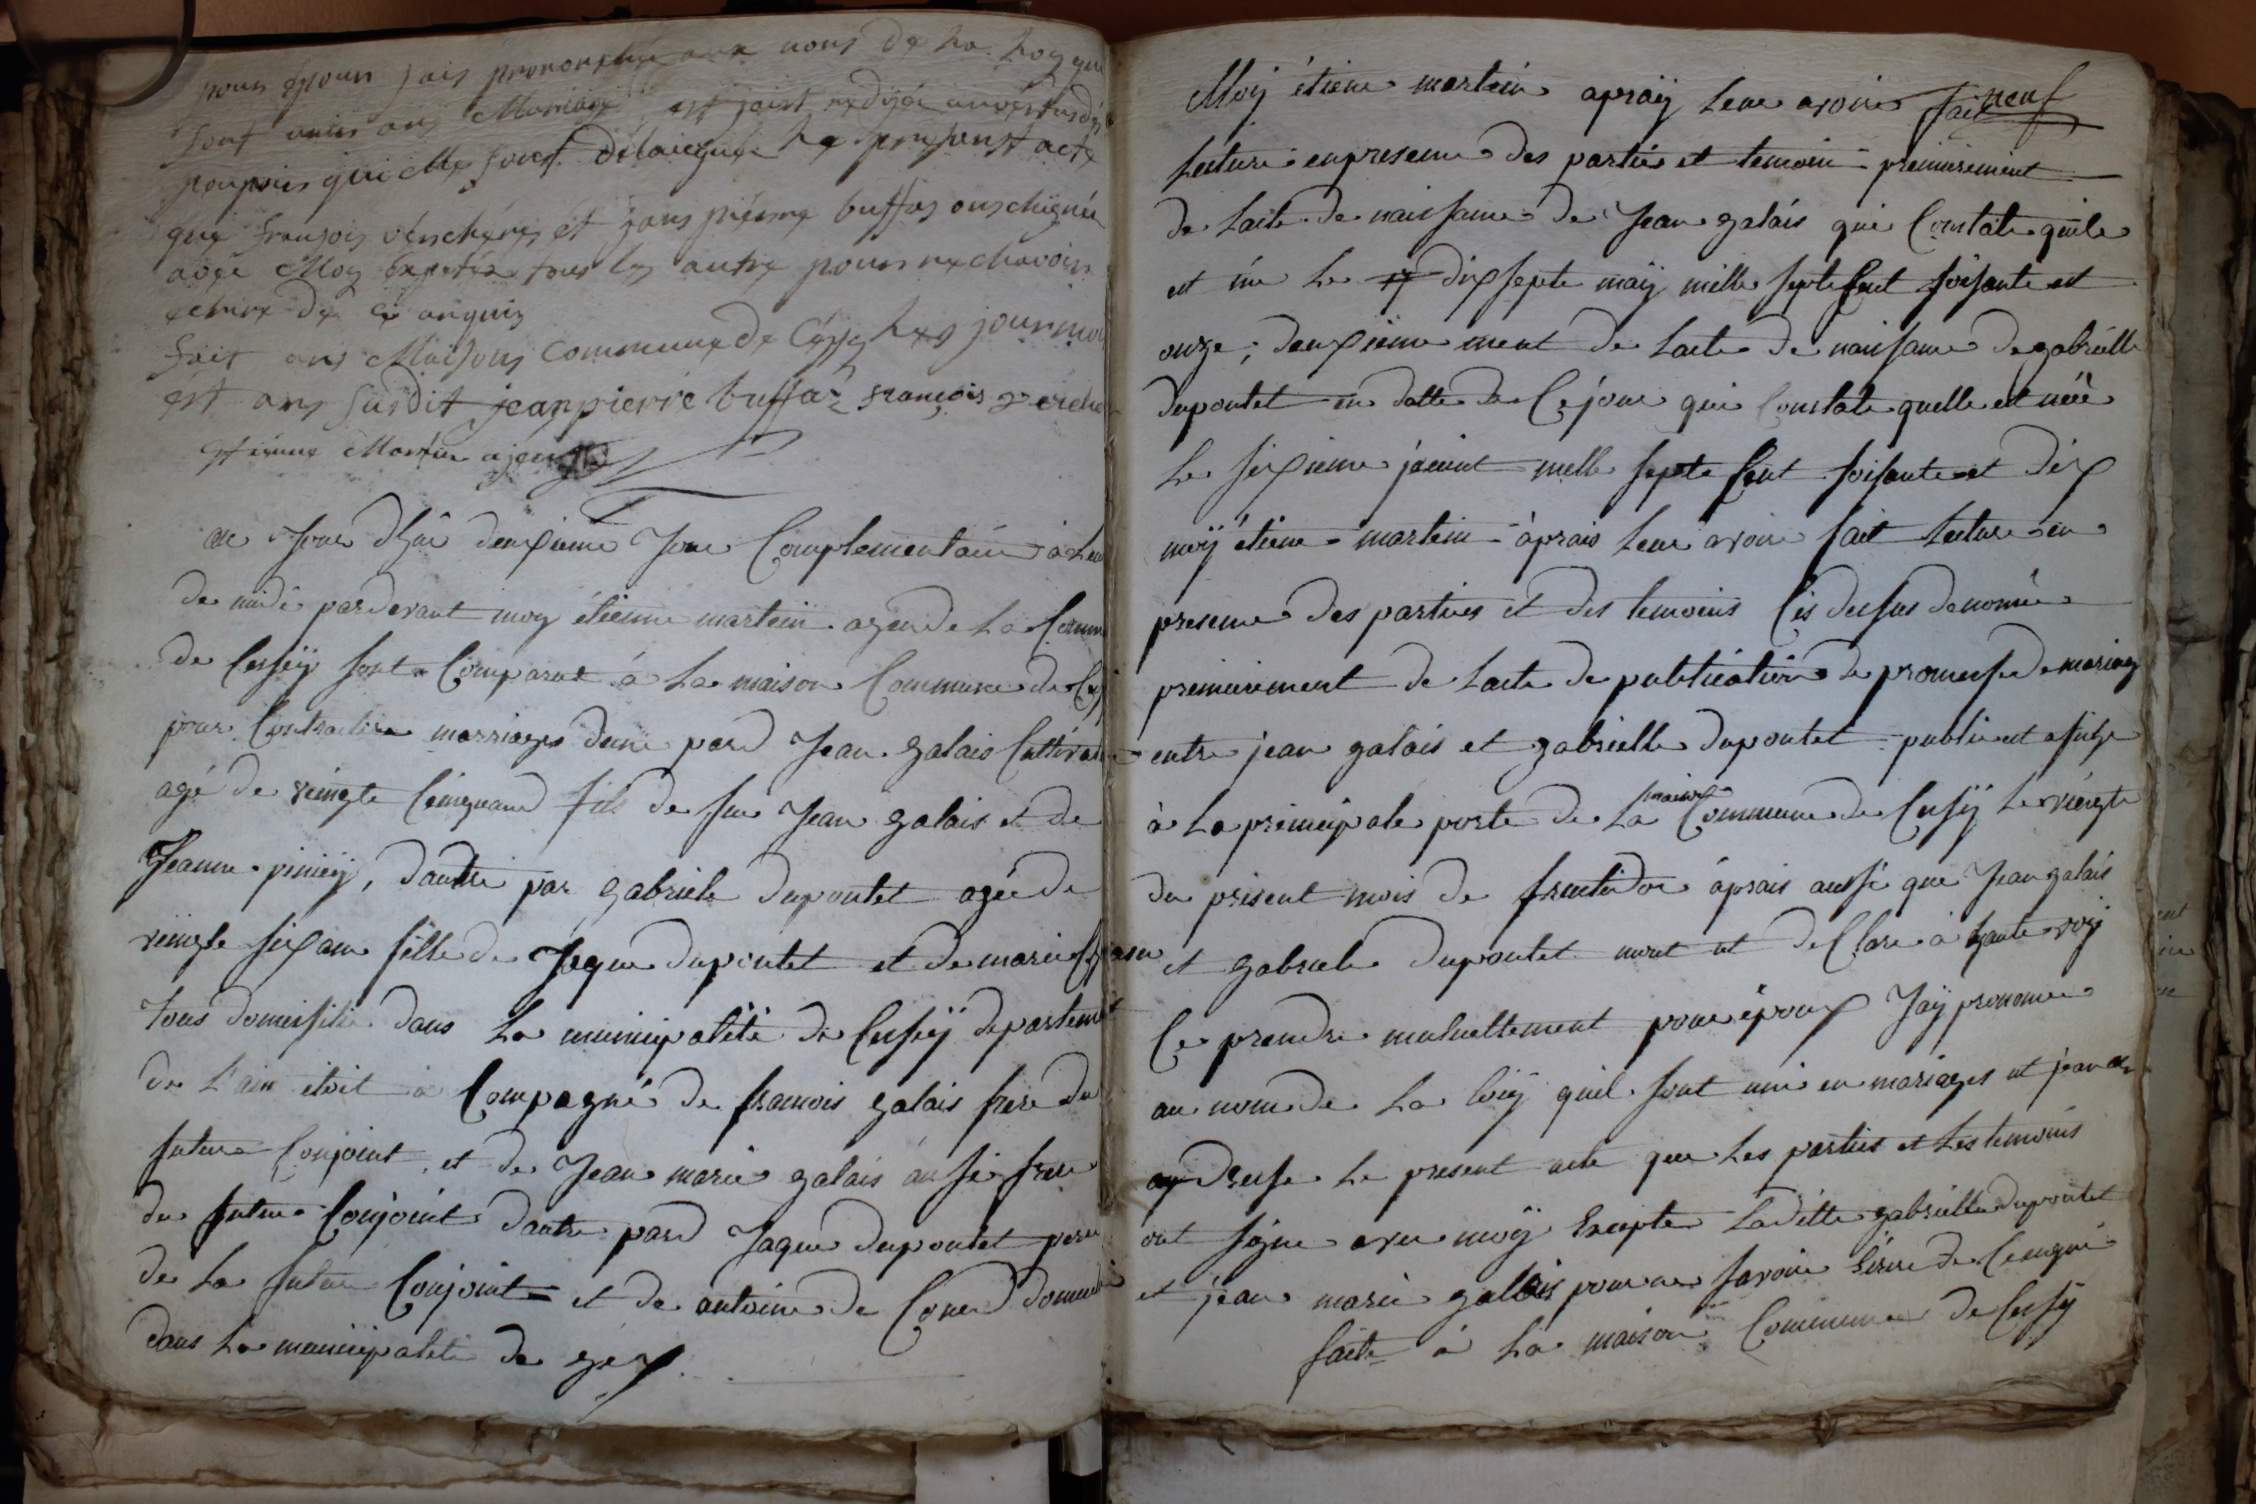 pour epoux jais prononcé aux nons de La Loy qui
sont unis ans Mariage est jaist redijée
qui elle sons le present acte
que françois vencheres et jans pierre buffas onschigné
avée Moy exeptéz tous les autre pour ne chavoir
echrire de ce anquis
fait ans Maisons Commune de Cessy Les jour moi
est ans susdit jean pierre buffaz françois
estienne Martin agent
au Jour dhui deuxieme Jour Complementaire à
de midi pardevant moy étienne martein agen de La Comm
de Cessÿ sont Comparut à La maison Commune de Cess
pour Contractere marriages dune pard Jean galais Cultivat
agé de veingte Ceinq and fils de feu Jean galais et de
Jeanne piniey, dautre par gabriele dupontet agée de
veingte sixane fille de Jaque dupontet et de marie
tous domisilie dans La municipalité de Cessÿ departement
de L'ain étoit à Compagné de framois galais frere du
future Conjoint et de Jean marie galais áusi frere
du future Conjoint dautre pard Jaque dupontet pere
de La future Conjointe et de antoine de Cover
dans La municipalité de géx
neuf
Moy étiene martein apraÿ Leur avoire fait
Lecture enpresence des partie et temoin premierement
de Lacte de naissance de Jean galais qui Constate quile
est née Le 17 dixsepte maÿ mille septe Cent soisante et
onze; deuxieme ment de Lacte de naissance de gabriélle
dupontet en datte de Ce jour qui Constate quelle est néé
Le sixieme mille septe Cent soisante et dix
moÿ étiene martein áprais Leur avoire fait Lecture en
presence des parties et des temoins Cis dessus denomé
premierement de Lacte de publication de promesse de mariag
entre jean galais et gabrielle dupontet publie et afiche
à La principale porte de La maison Commune de Cessÿ Le veingte
du present mois de fructidor áprais aussi que Jean galais
et gabriele dupontet ont et deClare à haute voÿ
Ce prendre mutuellement pour époux Jaÿ prononce
au nom de La Loiy quil sont uni en mariages et jean ai
ay dresse Le present acte que Les parties et Les temoins
ont signe avec moÿ Excepte Ladite gabrielle dupontet
et jean marie galais pour ne savoire de Ceenquis
faite à La maison Commune de Cessÿ